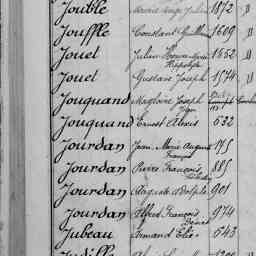 Jouble 1872
Jouffle Constant Guillaume 1609
Jouet Julien Hippolyte 1552
Jouet Gustave Joseph 1574
Jouquand Magloire Joseph Jean
Jouquand Ernest Alexis 532
Jourdan Jean Marie Auguste François 1795
Jourdan Pierre François 885
Jourdan Auguste Adolphe 901
Jourdan Alfred François Désiré 974
Jubeau Armand Elie 543